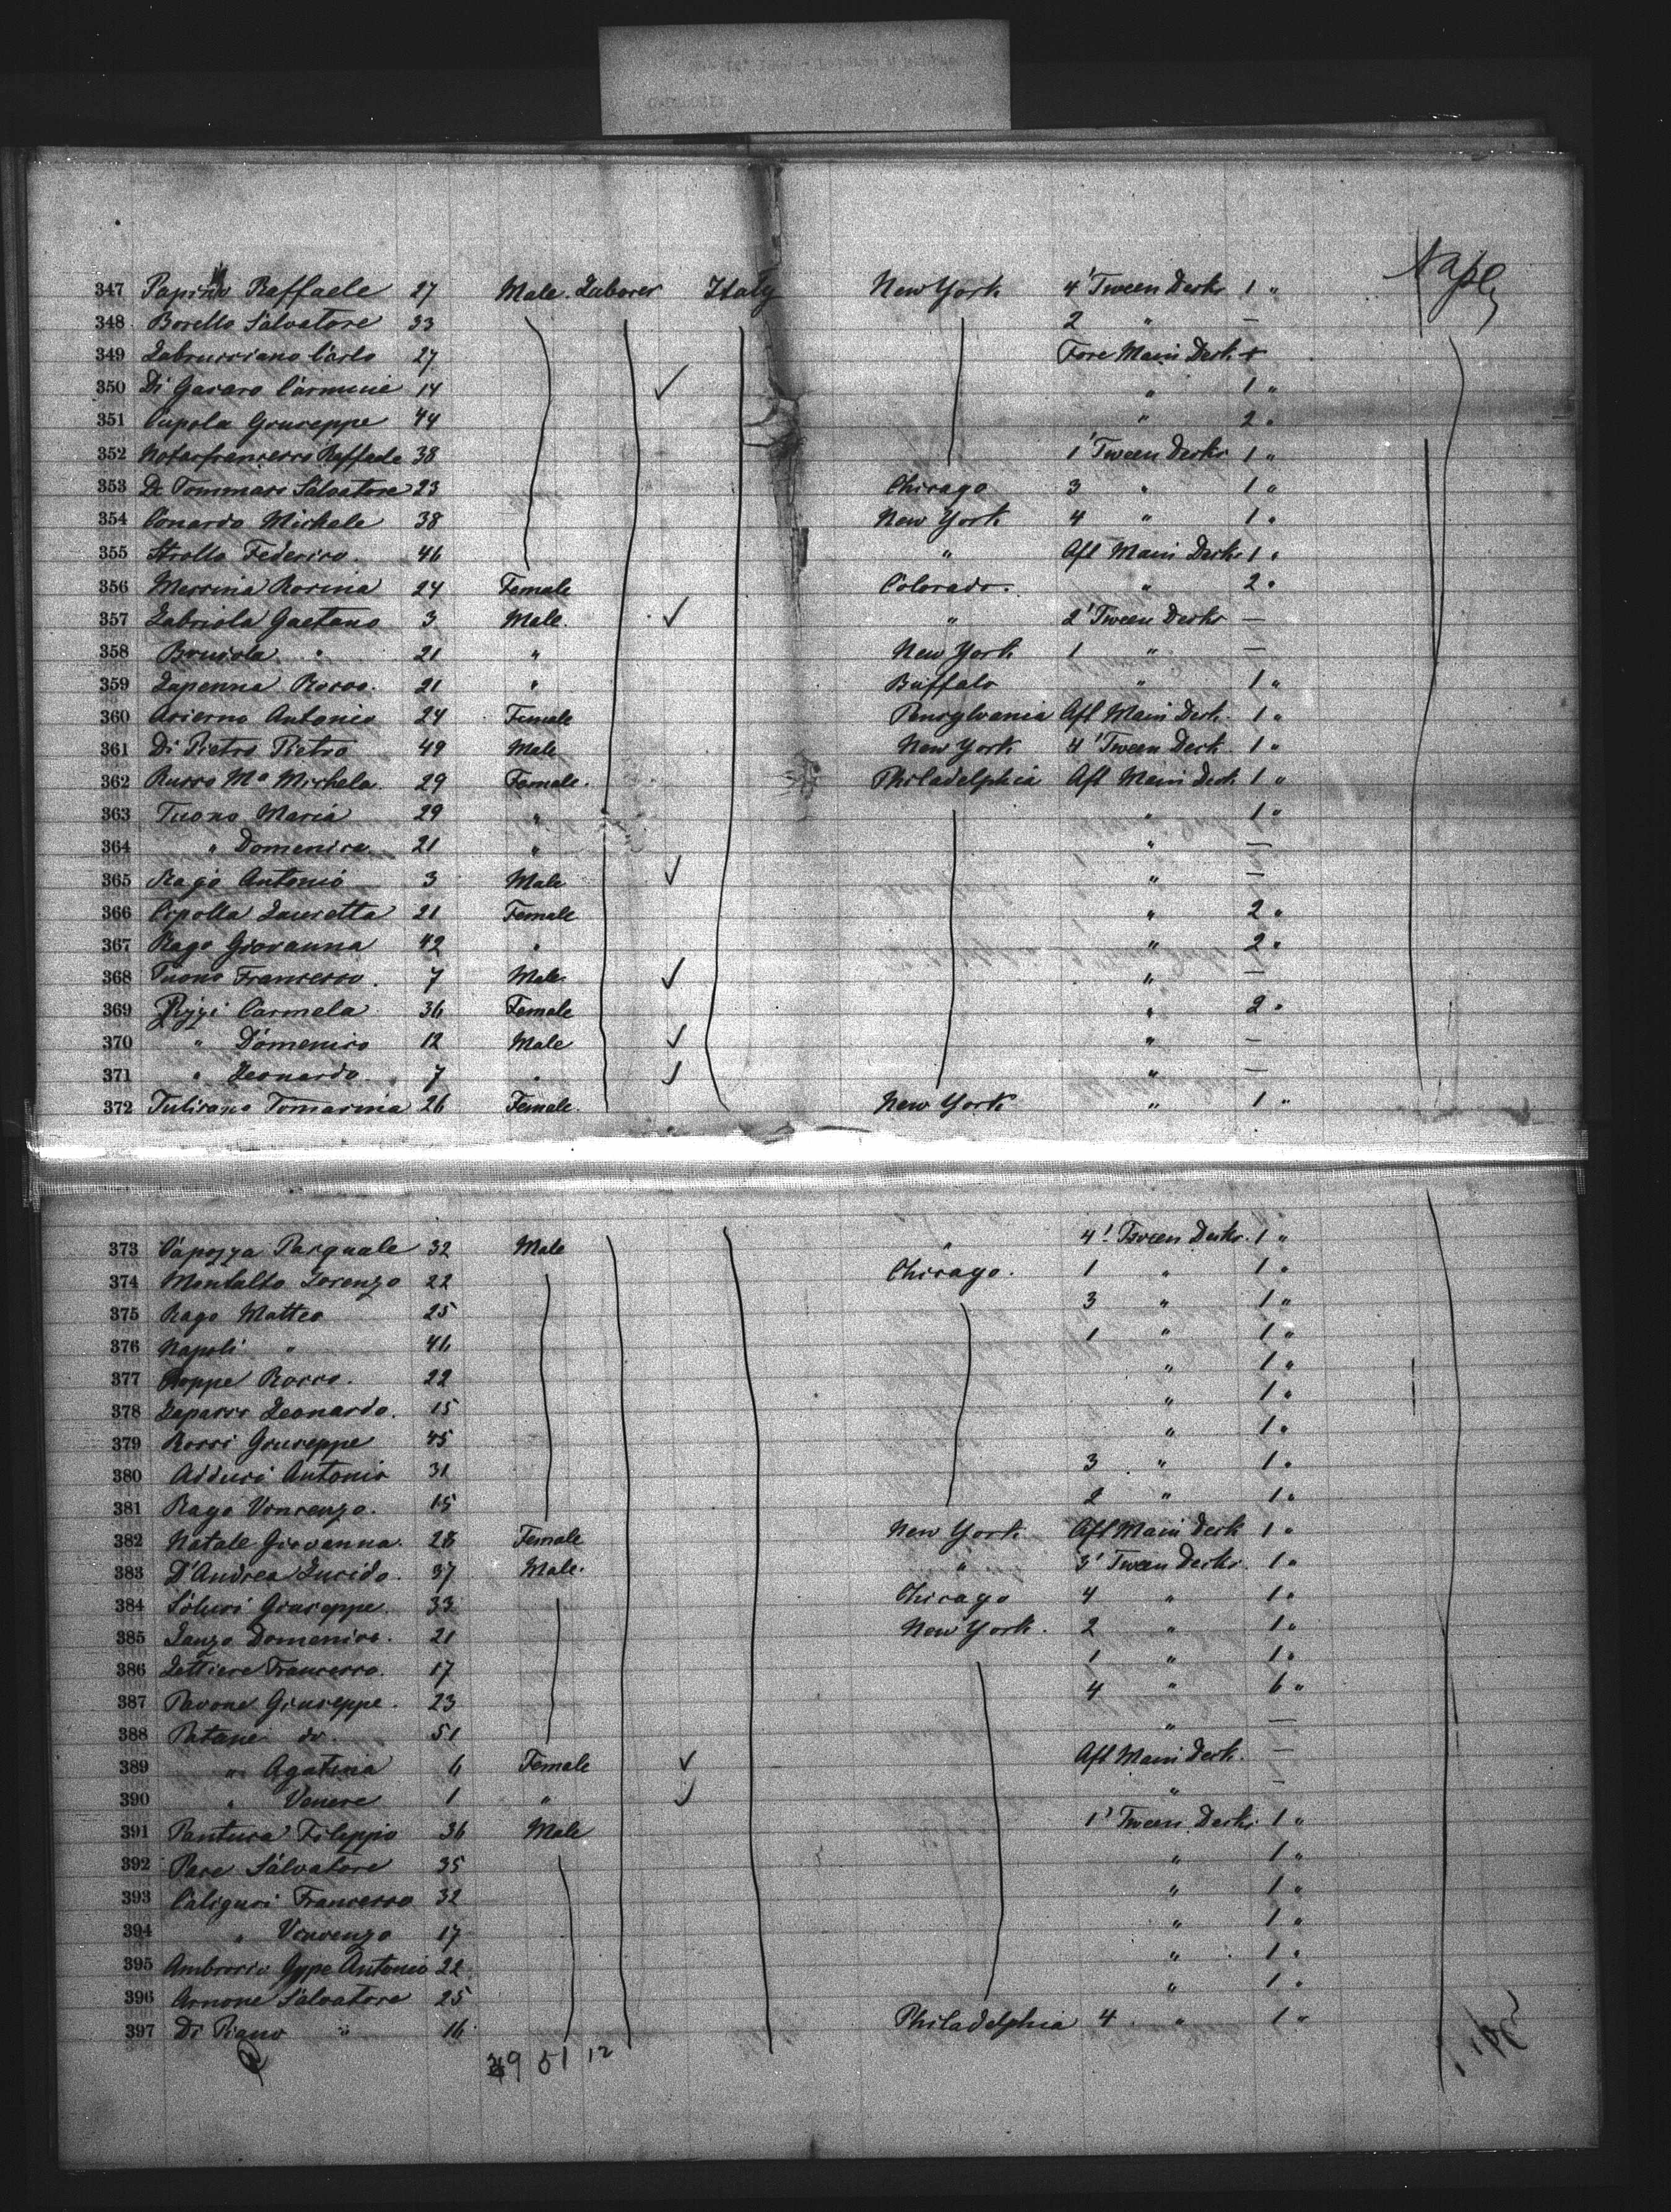 Naples
347 Papino Raffaele 27 Male Laborer Italy New York 4' Tween Decks 1 "
348 Borello Salvatore 33 2 " —
349 Labrucciano Carlo 27 Fore Main Deck
350 Di Gavaro Carmine 14 ✓ " 1 "
351 Cupola Giuseppe 44 " 2 "
352 Notarfrancesco Raffaele 38 1' Tween Decks 1 "
353 De Tommaso Salvatore 23 Chicago 3 " 1 "
354 Conardo Michele 38 New York 4 " 1 "
355 Strollo Federico 46 " Aft Main Deck 1 "
356 Messina Rosina 24 Female Colorado " 2 "
357 Labriola Gaetano 3 Male ✓ " 2' Tween Decks —
358 Brusola " 21 " New York 1 " —
359 Lapenna Rocco 21 " Buffalo " 1 "
360 Acierno Antonia 24 Female Pensylvania Aft Main Deck 1 "
361 Di Pietro Pietro 49 Male New York 4' Tween Deck 1 "
362 Russo Mª Michela 29 Female Philadelphia Aft Main Deck 1 "
363 Tuono Maria 29 " " 1 "
364 " Domenica 21 " " —
365 Rago Antonio 3 Male ✓ " —
366 Cipolla Lauretta 21 Female " 2 "
367 Rago Giovanna 42 " " 2 "
368 Tuono Francesco 7 Male ✓ " —
369 Pizzi Carmela 36 Female " 2 "
370 " Domenico 12 Male ✓ " —
371 " Leonardo 7 " ✓ " —
372 Tulisano Tomasina 26 Female New York " 1 "
373 Capozza Pasquale 32 Male " 4' Tween Decks 1 "
374 Montalto Lorenzo 22 Chicago 1 " 1 "
375 Rago Matteo 25 3 " 1 "
376 Napoli " 46 1 " 1 "
377 Roppe Rocco 22 " 1 "
378 Lapasso Leonardo 15 " 1 "
379 Rossi Giuseppe 45 " 1 "
380 Adduci Antonio 31 3 " 1 "
381 Rago Vincenzo 15 2 " 1 "
382 Natale Giovanna 28 Female New York Aft Main Deck 1 "
383 D'Andrea Lucido 37 Male " 3' Tween Decks 1 "
384 Soluri Giuseppe 33 Chicago 4 " 1 "
385 Lanzo Domenico 21 New York 2 " 1 "
386 Lettiere Francesco 17 1 " 1 "
387 Pavone Giuseppe 23 4 " 6 "
388 Patane do. 51 " —
389 " Agatina 6 Female ✓ Aft Main Deck —
390 " Venere 1 " ✓ " —
391 Pantusa Filippo 36 Male 1' Tween Decks 1 "
392 Pace Salvatore 35 " 1 "
393 Caliguri Francesco 32 " 1 "
394 " Vincenzo 17 " 1 "
395 Ambrosio Gppe Antonio 22 " 1 "
396 Arnone Salvatore 25 " 1 "
397 Di Piano " 16 Philadelphia 4 " 1 "
39 51 12